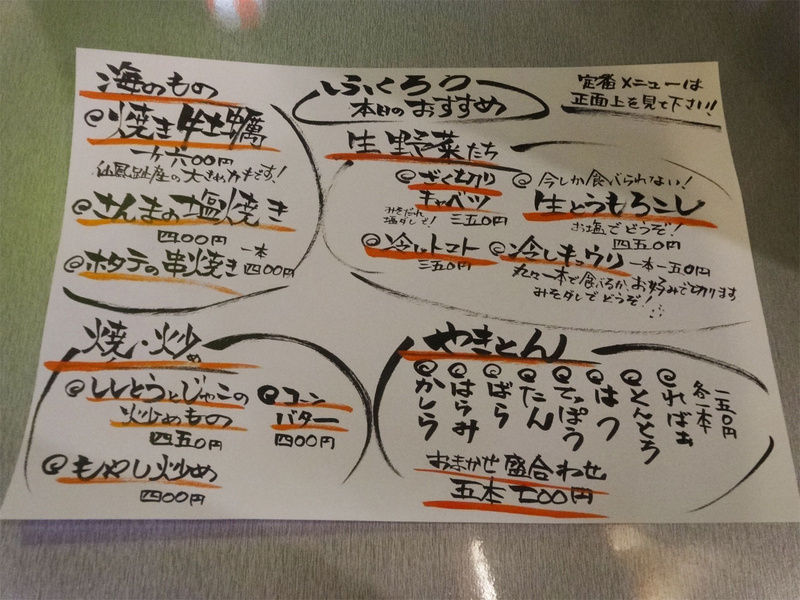 ふくろう
本日のおすすめ
定番メニューは
正面上を見て下さい!
海のもの
焼き牡蠣
一ヶ六00円
仙鳳趾産の大きなカキです!
さんまの塩焼き
四00円
ホタテの串焼き 一本 四00円
生野菜たち
ざく切り
キャベツ
みそだれ
塩ダレで!
三五0円
今しか食べられない!
生とうもろこし
お塩でどうぞ!
四五0円
冷しトマト
三五0円
冷しキュウリ 一本一五0円
丸々一本で食べるか、お好みで切ります
みそダレでどうぞ!
焼・炒め
ししとうとじゃこの
炒めもの
四五0円
コーン
バター
四00円
もやし炒め
四00円
やきとん
各一本 一五0円
ればぁ
とんとろ
はつ
てっぽう
たん
ばら
はらみ
かしら
おまかせ盛合わせ
五本 七00円